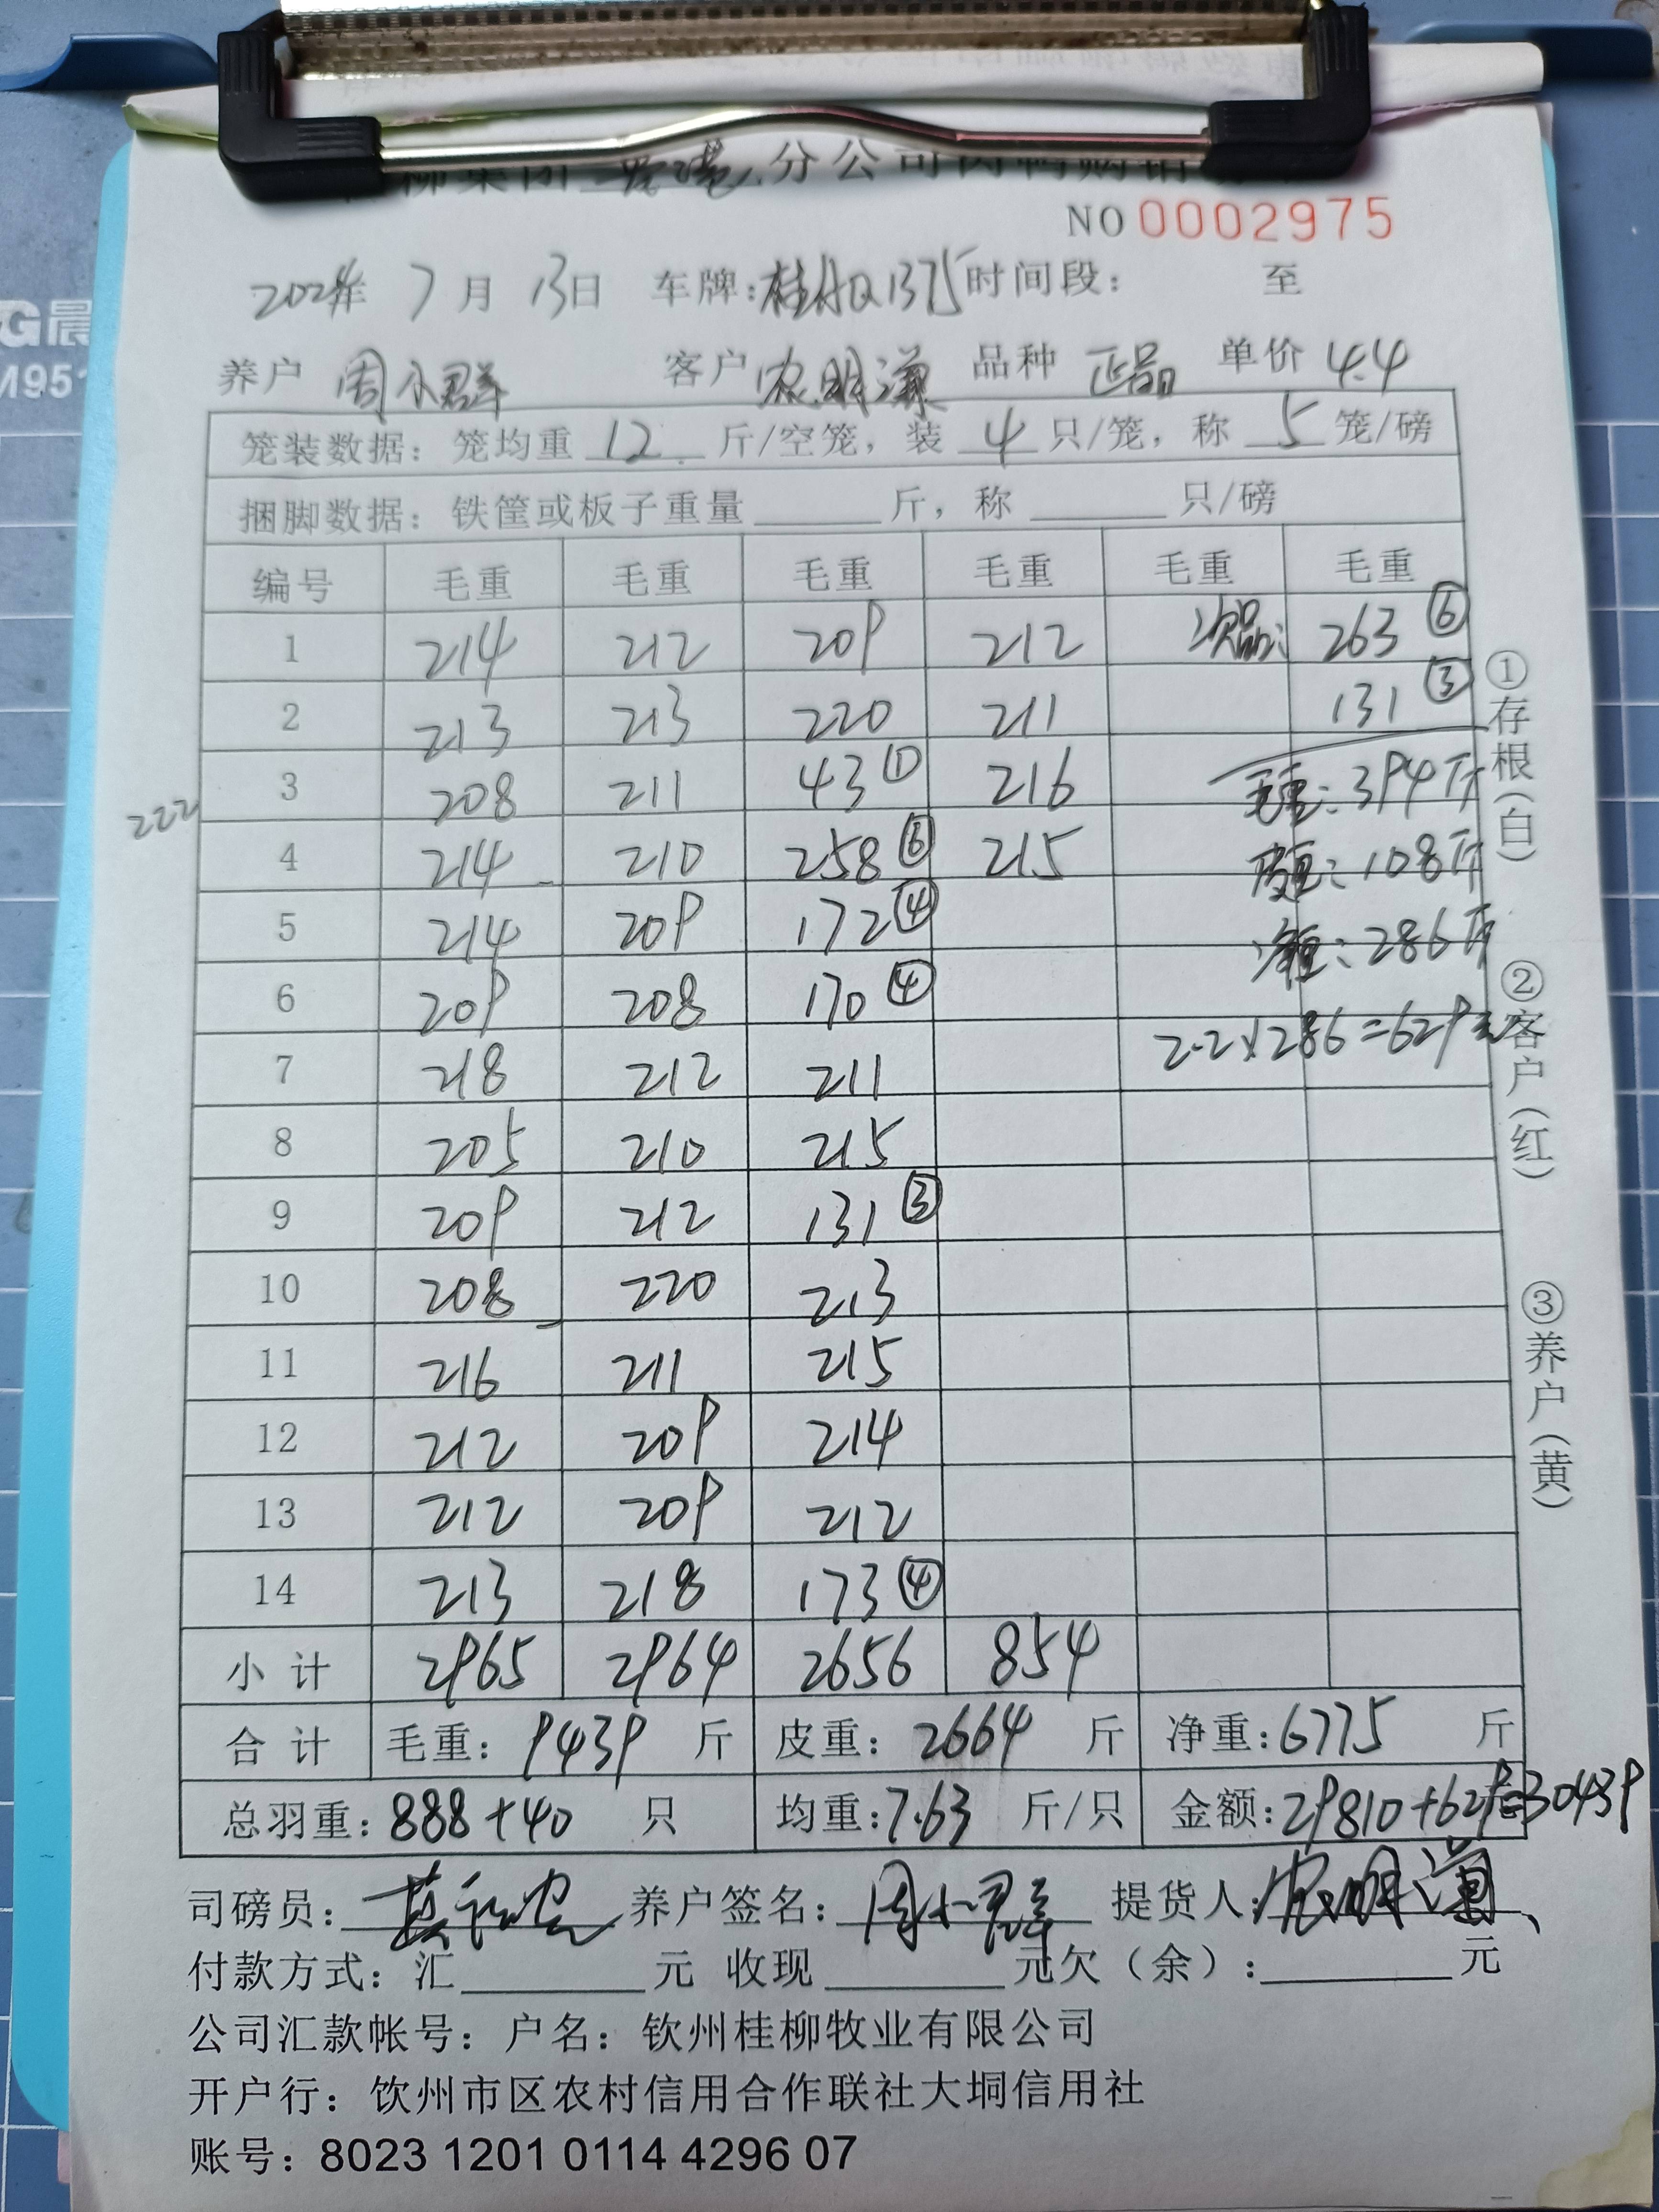 G晨
M951
分公司肉鸭购销
NO 0002975
2024年 7月 13日 车牌:桂AQ1375 时间段: 至
养户 周小群 客户 农明谦 品种 正品 单价 4.4
笼装数据: 笼均重 12 斤/空笼, 装 4 只/笼, 称 5 笼/磅
捆脚数据: 铁筐或板子重量 斤, 称 只/磅
编号 毛重 毛重 毛重 毛重 毛重 毛重
1 214 212 209 212 次品: 263 ⑥
2 213 213 220 211 131 ③
3 208 211 43 ① 216 毛重: 394斤
222
4 214 210 258 ⑥ 215 皮重: 108斤
5 214 209 172 ④ 净重: 286斤
6 209 208 170 ④ 2.2×286=629元
7 218 212 211
8 205 210 215
9 209 212 131 ③
10 208 220 213
11 216 211 215
12 212 209 214
13 212 209 212
14 213 218 173 ④
小计 2965 2964 2656 854
合计 毛重: 9439 斤 皮重: 2664 斤 净重: 6775 斤
总羽重: 888+40 只 均重: 7.63 斤/只 金额: 29810+629=30439
①存根(白) ②客户(红) ③养户(黄)
司磅员: 养户签名: 周小群 提货人: 农明谦
付款方式: 汇 元 收现 元欠(余): 元
公司汇款帐号: 户名: 钦州桂柳牧业有限公司
开户行: 钦州市区农村信用合作联社大垌信用社
账号: 8023 1201 0114 4296 07